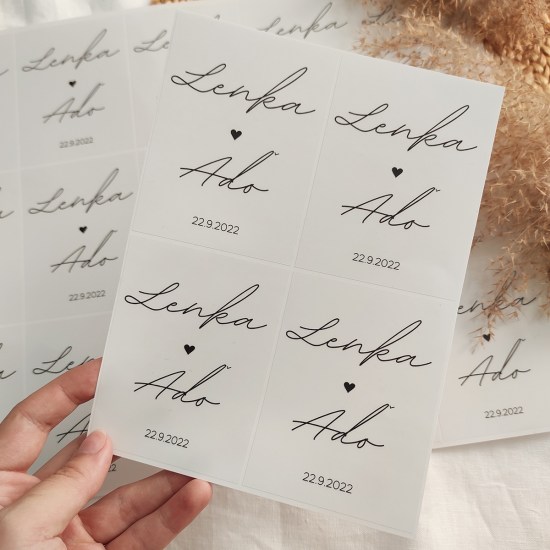 Lenka
♥
Aďo
22.9.2022
Lenka
♥
Aďo
22.9.2022
Lenka
♥
Aďo
22.9.2022
Lenka
♥
Aďo
22.9.2022
Lenka
♥
Aďo
22.9.2022
Lenka
♥
Aďo
22.9.2022
Aďo
22.9.2022